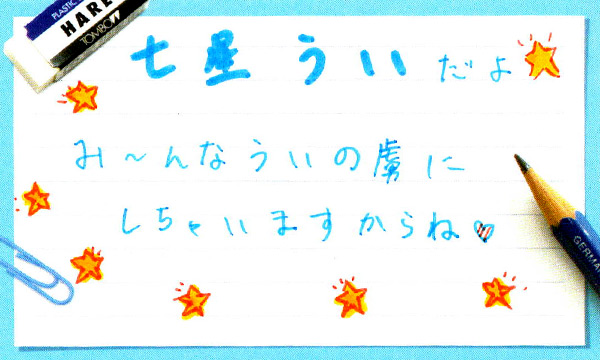 PLASTIC
HARD
TOMBOW
七星ういだよ
み〜んなういの虜に
しちゃいますからね♥
GERMANY